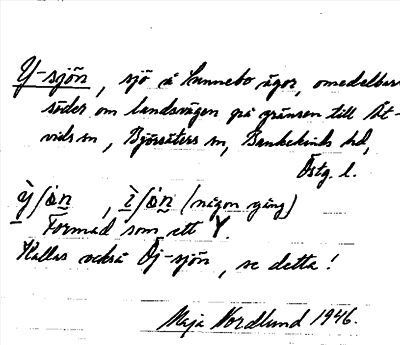 Y-sjön, sjö å Hunnebo ägor, omedelbart
söder om landsvägen på gränsen till Åt-
vids sn, Björsäters sn, Bankekinds hd,
Östg. l.
ỳ ʃön, ì ʃön (någon gång)
Formad som ett Y.
Kallas också Öj-sjön, se detta!
Maja Nordlund 1946.